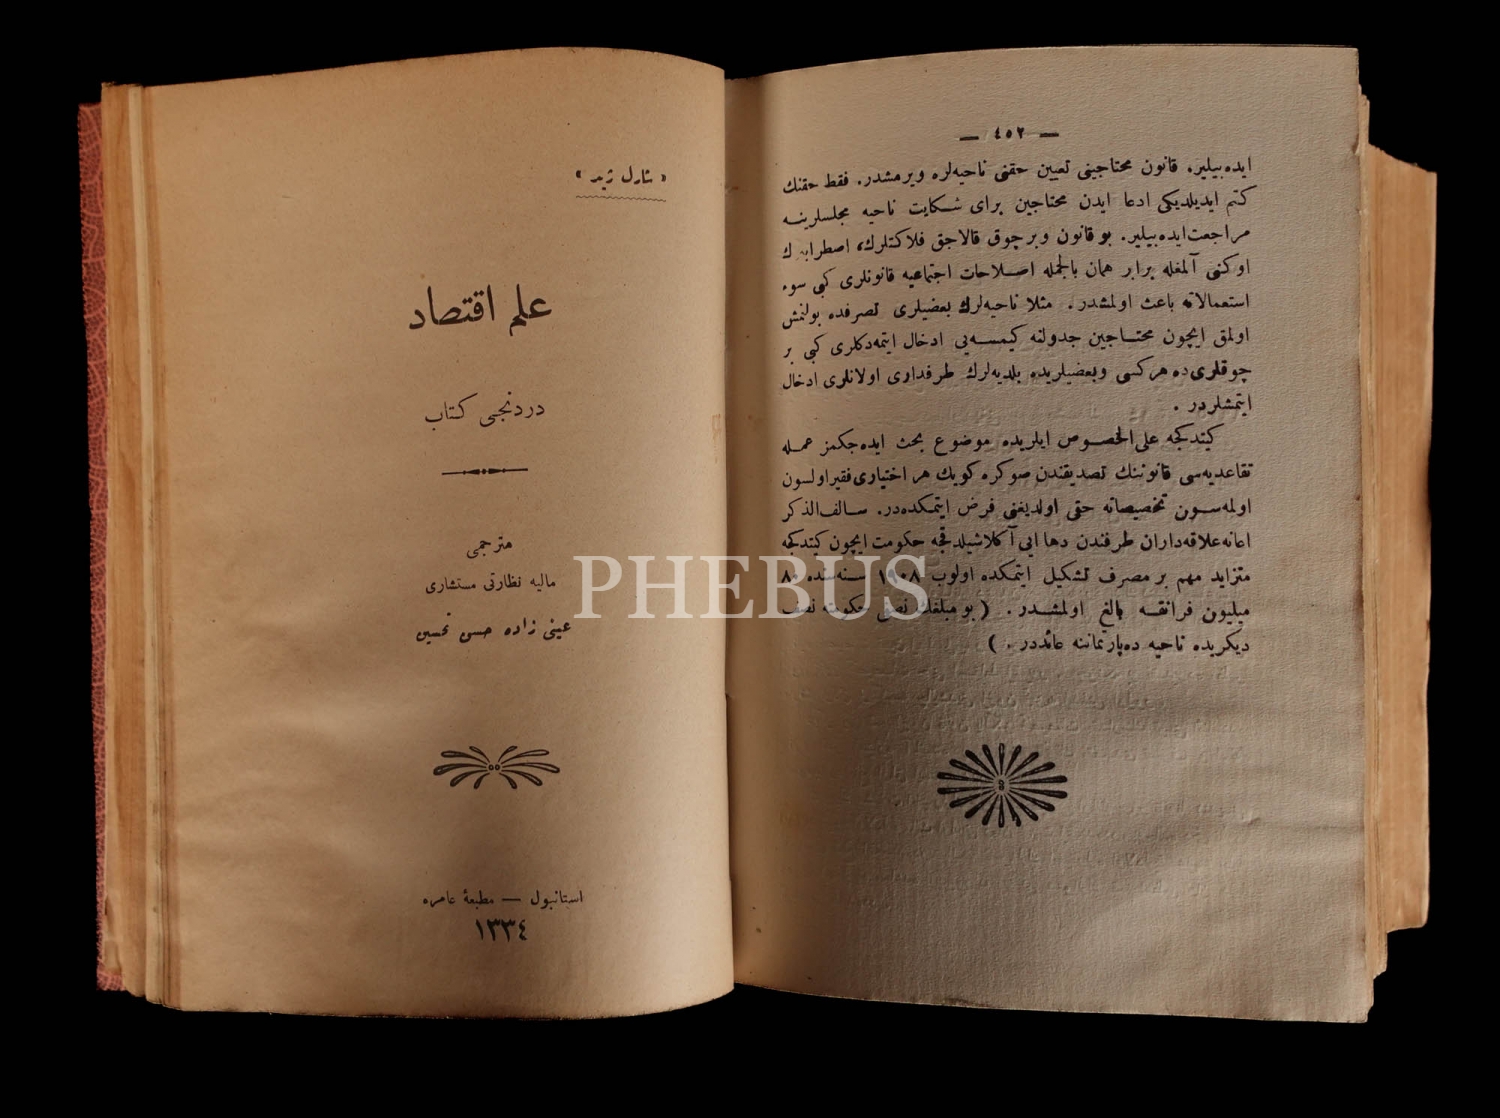 — ٤٥٢ —
ایده‌بیلیر. قانون محتاجینی تعیین حقنی ناحیه‌لره ویرمشدر. فقط حقنك
کتم ایدیلدیکی ادعا ایدن محتاجین برای شکایت ناحیه مجلسلرینه
مراجعت ایده‌بیلیر. بو قانون ویرچوق قالاجق فلاکتلرك، اصطرابه ك
اوکنی آلمغله برابر همان بالجمله اصلاحات اجتماعیه قانونلری کبی سوء
استعمالاته باعث اولمشدر. مثلا ناحیه‌لرك بعضیلری تصرفده بولنمش
اولمق ایچون محتاجین جدولنه کیمسه‌یی ادخال ایتمه‌دکلری کبی بر
چوقلری‌ده هرکسی وبعضیلریده بلدیه‌لرك طرفداری اولانلری ادخال
ایتمشلردر.
کیتدکجه علی‌الخصوص ایلریده موضوع بحث ایده‌جکمز عمله
تقاعدیه‌سی قانوننك تصدیقندن صوکره کویك هر اختیاری فقیر اولسون
اولمه‌سون تخصیصاته حقی اولدیغنی فرض ایتمکده‌در. سالف‌الذکر
اعانه علاقه‌داران طرفندن دها ایی آکلاشیلدقجه حکومت ایچون کیتدکجه
متزاید مهم بر مصرف تشکیل ایتمکده اولوب ١٩٠٨ سنه‌سنده ٨٠
میلیون فرانقه بالغ اولمشدر. ( بو مبلغك نصفی حکومته نصف
دیکریده ناحیه ده‌پارتماننه عائددر. )
« شارل ژید »
علم اقتصاد
دردنجی کتاب
مترجمی
مالیه نظارتی مستشاری
عینی زاده حسن تحسین
استانبول — مطبعهٔ عامره
١٣٣٤
PHEBUS